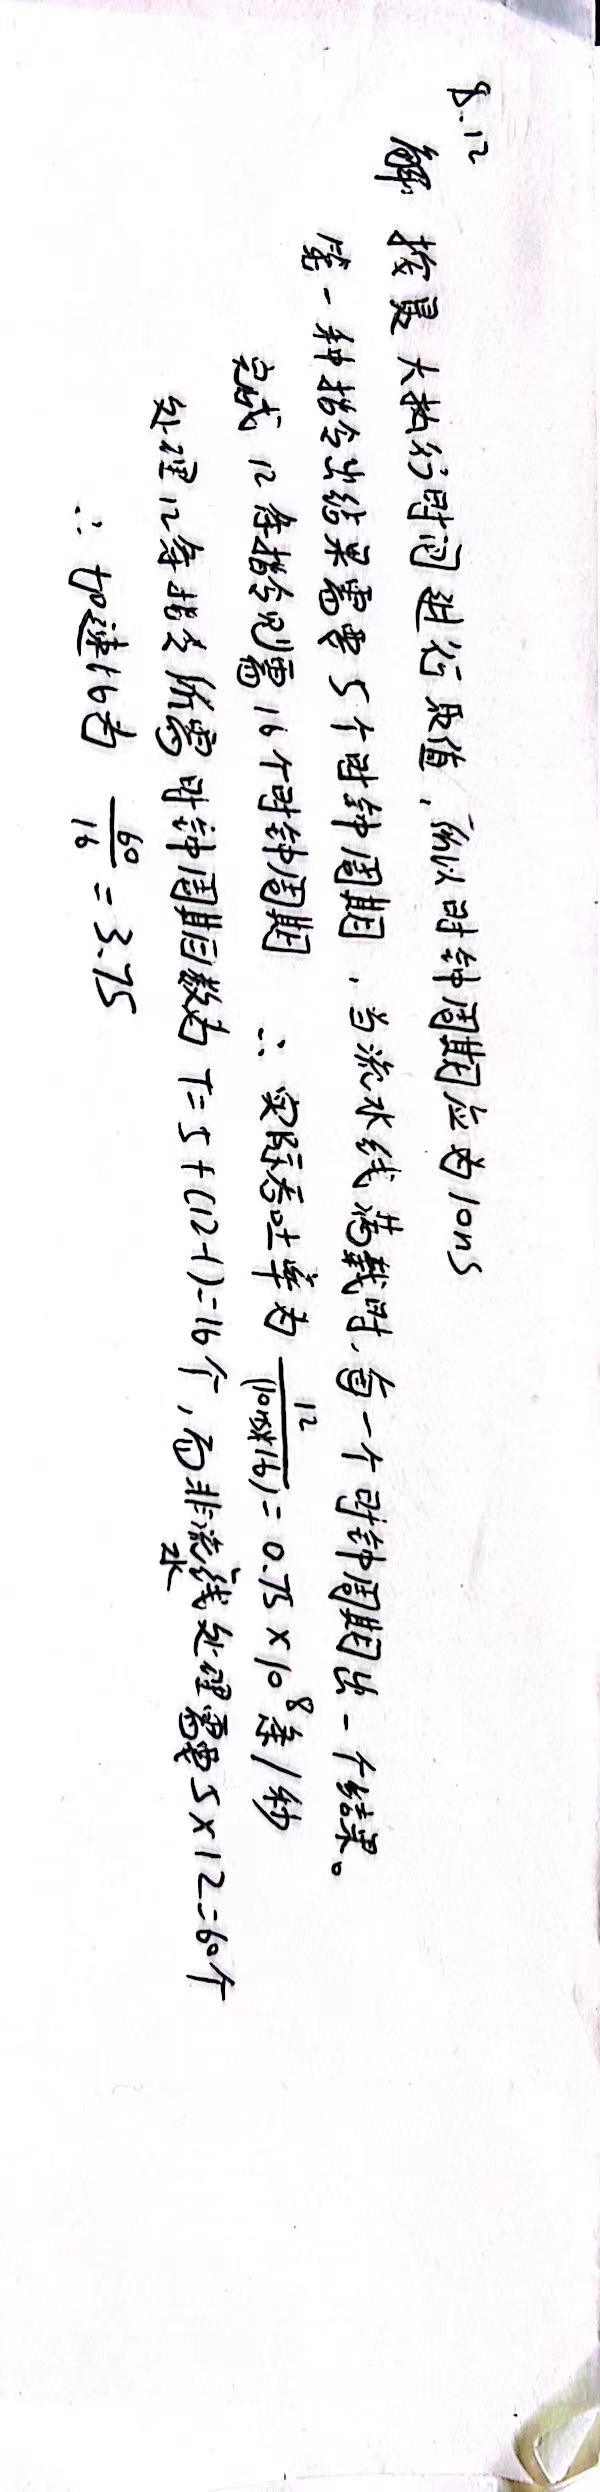 8.12
解 按最大执行时间进行取值,所以时钟周期应为10ns
第一种指令出结果需要5个时钟周期,当流水线满载时,每一个时钟周期出一个结果。
完成12条指令则需16个时钟周期 ∴实际吞吐率为 12/(10ns×16) = 0.75×10⁸条/秒
处理12条指令所需时钟周期数为 T=5+(12-1)=16个,而非流水线处理需要5×12=60个
∴加速比为 60/16 = 3.75